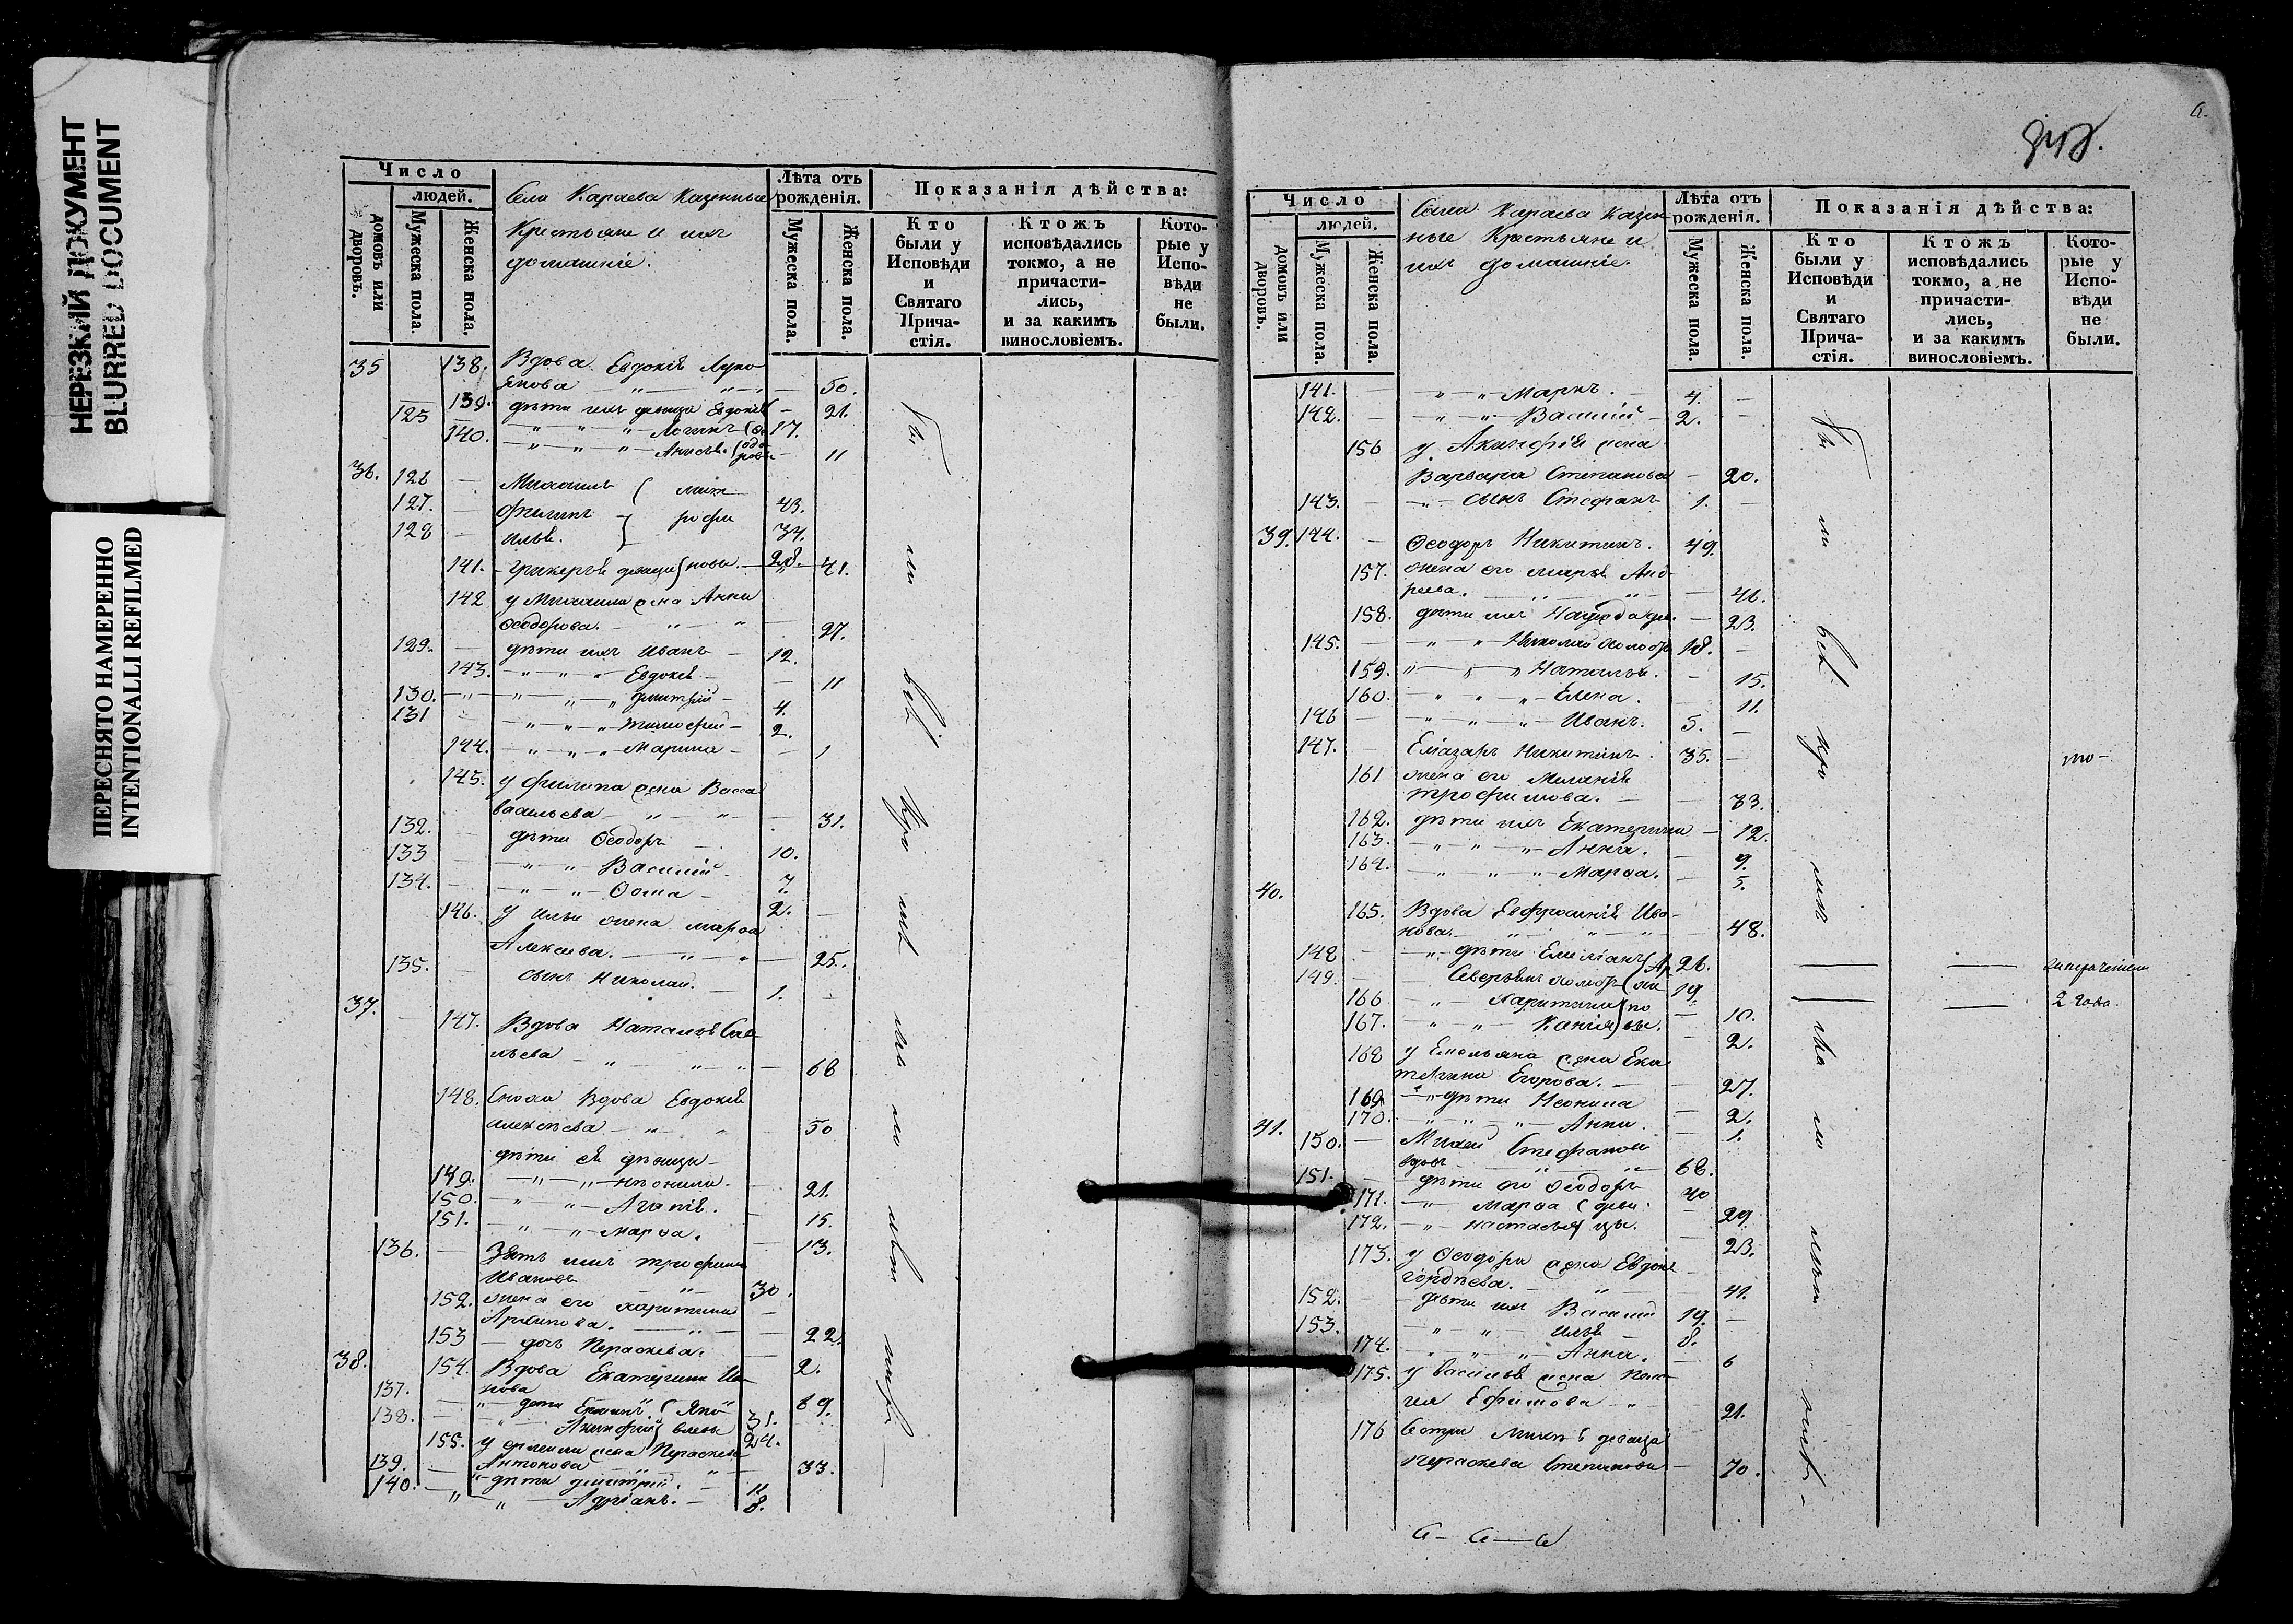 НЕРЕЗКИЙ ДОКУМЕНТ
BLURRED DOCUMENT
ПЕРЕСНЯТО НАМЕРЕННО
INTENTIONALLI REFILMED
Число
людей.
домовъ или дворовъ.
Мужеска пола.
Женска пола.
Села Караева Казенные
Крестьяне и ихъ
домашніе.
Лѣта отъ
рожденія.
Мужеска пола.
Женска пола.
Показанія дѣйства:
Кто
были у
Исповѣди
и
Святаго
Прича-
стія.
Ктожъ
исповѣдались
токмо, а не
причасти-
лись,
и за какимъ
винословіемъ.
Кото-
рые у
Испо-
вѣди
не
были.
35 138. Вдова Евдокія Луко
янова 50.
139. дѣти ихъ девица Евдокія 21.
125 Логинъ 17.
140. 11
36. 126 Михаилъ мит 43.
127. Филипъ рофа 34.
128 Илья. 28.
141. Гликерья девица новы. 41.
142 у Михаила жена Анна
Ѳеодорова. 27.
129. дѣти ихъ Иванъ 12.
143. Евдокія 11
130. Дмитрій 4.
131 Тимофей 2.
144. Марина 1
145. у Филипа жена Васса
васильева 31.
132. дѣти Ѳеодоръ 10.
133 Василій 7.
134. Ѳома 2.
146. у Ильи жена марѳа
Алексеева. 25.
135. сынъ Николай. 1.
37. 147. Вдова Наталья Саве
льева 68
148. Сноха Вдова Евдокія
алексѣева 50
дѣти ея девицы
149. неонила. 21.
150. Агапія. 15.
151. марѳа. 13.
136. Зять ихъ трофимъ
Ивановъ 30.
152. жена его харитина
Архипова. 22.
153 дочь Параскева. 2.
38. 154. Вдова Екатерина Ива
нова 69.
137. дети Ермилъ Яко 31.
138. Акинфій влевы 24.
155. у ермила жена Параскева
Антонова 33.
139. дѣти дмитрій. 11
140. Адріанъ. 8.
Число
людей.
домовъ или дворовъ.
Мужеска пола.
Женска пола.
Села Караева Казен
ные Крестьяне и
ихъ домашніе.
Лѣта отъ
рожденія.
Мужеска пола.
Женска пола.
Показанія дѣйства:
Кто
были у
Исповѣди
и
Святаго
Прича-
стія.
Ктожъ
исповѣдались
токмо, а не
причасти-
лись,
и за какимъ
винословіемъ.
Кото-
рые у
Испо-
вѣди
не
были.
141. Маркъ. 4.
142. Василій 2.
156 у Акинфія жена
Варвара Степанова 20.
143. сынъ Стефанъ 1.
39. 144. Ѳеодоръ Никитинъ. 49.
157. жена его марья Анд
реева. 46.
158. дѣти ихъ 23.
145. Николай холостъ 18.
159. Наталья. 15.
160. Елена. 11.
146 Иванъ. 5.
147. Еліазаръ Никитинъ. 35.
161 жена его Меланія
трофимова. 33.
162. дѣти ихъ Екатерина 12.
163. Анна. 9.
164. Марѳа. 5.
40. 165. Вдова Евфросинія Ива
нова 48.
148 дѣти Емеліанъ 26.
149. Северьянъ холост 19
2 года.
166 Харитина 10.
167. 2.
168 у Емельяна жена Ека
терина Егорова. 27.
169 дѣти Неонила 2.
170. Анна. 1.
41. 150. Михей Стефановъ
вдовъ 68.
151. дѣти его Ѳеодоръ 40
171. Марѳа деви 29
172. настасья цы. 23.
173. у Ѳеодора жена Евдокія
гордѣева. 41.
152. дѣти ихъ Василій 19.
153. Илья 8.
174. Анна. 6
175. у василья жена Пела
гея Ефимова 21.
176 Сестра Михея девица
параскева Степанова 70.